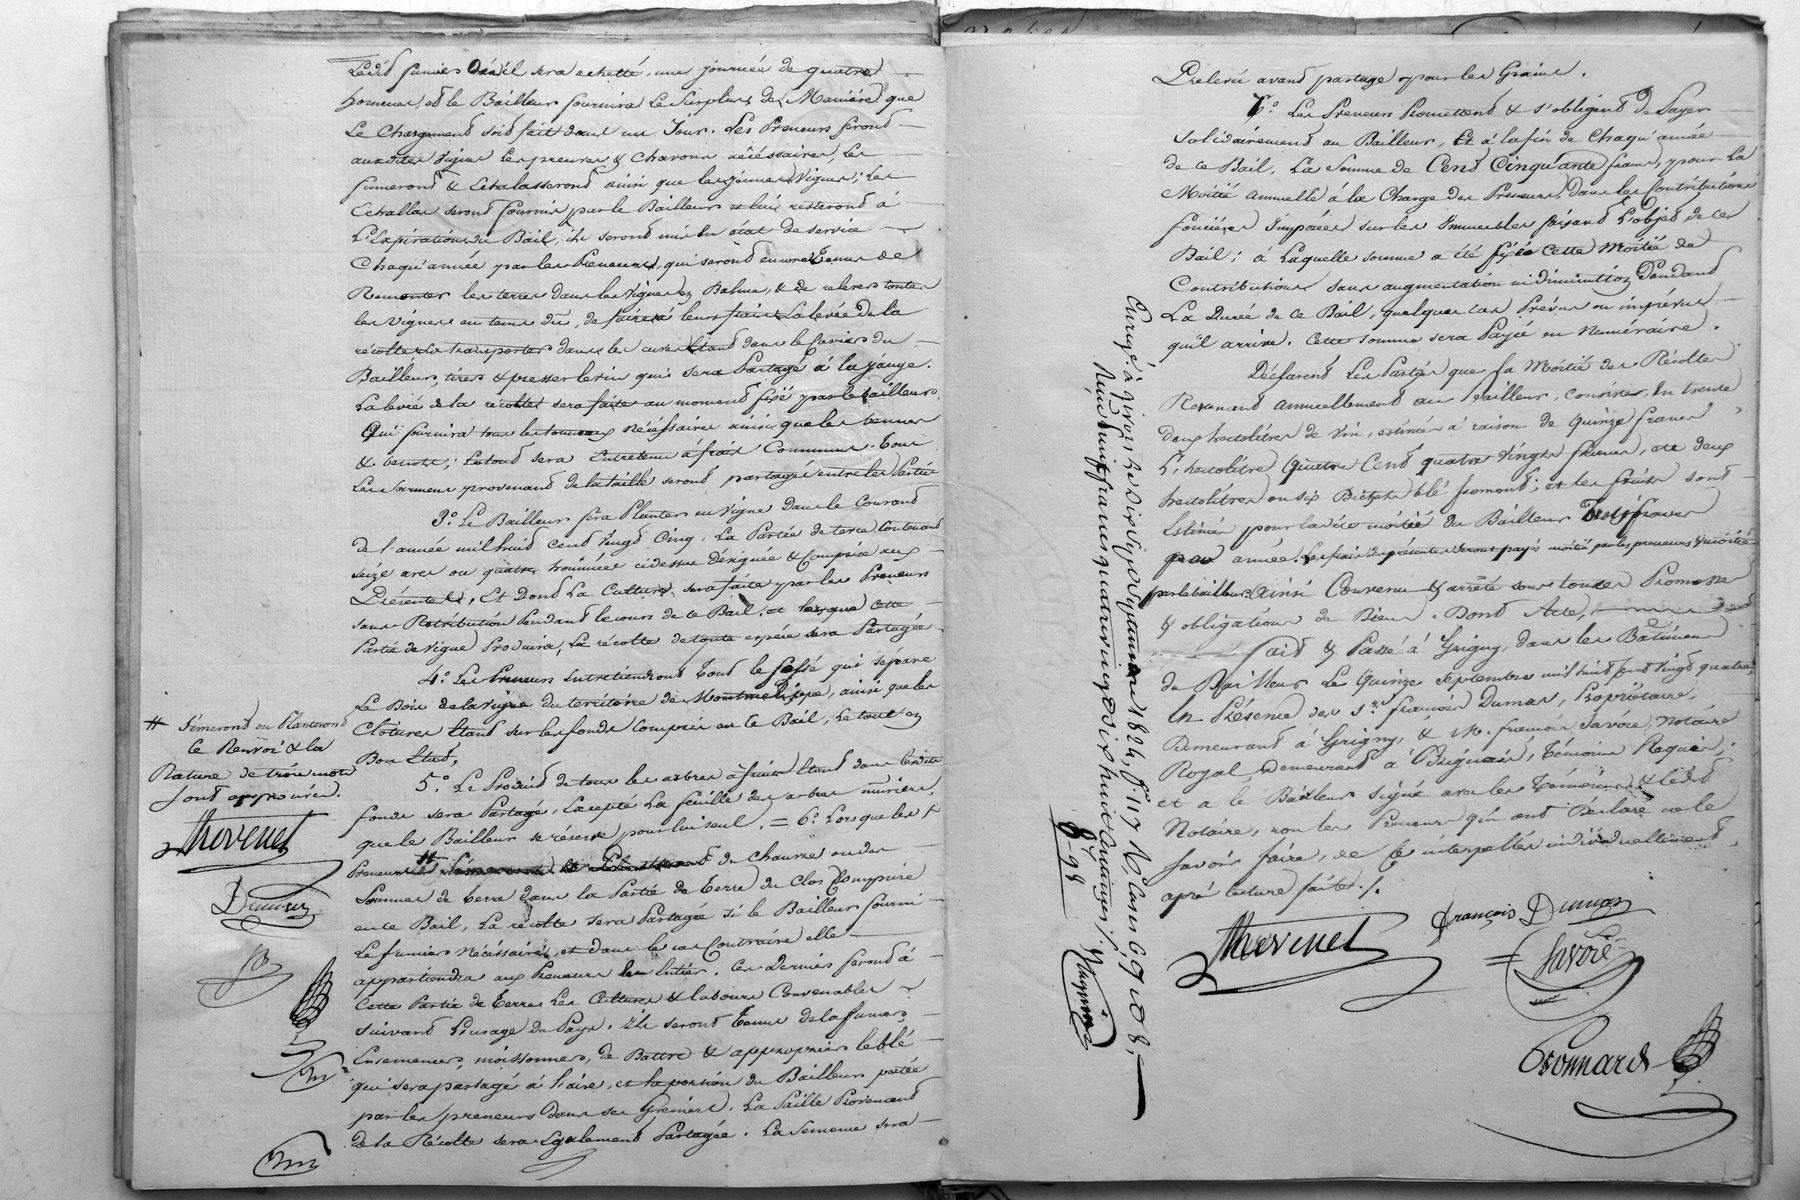 Ledit fumier s'il sera achetté, une journée de quatre
hommes, et le Bailleur fournira le Surplus de Manière que
Le Chargement soit fait dans un Jour. Les Preneurs feront
auxdites Vignes les preuves & Chavons nécéssaires, Les
fumeront & Echalasseront ainsi que les jeunes Vignes; les
Echallas seront fournis par le Bailleur et lui resteront à
L'Expiration du Bail, ils seront mis en état de service
Chaqu'année par les Preneurs, qui seront encore Tenus de
Remonter les terres dans les Vignes en Balme, & de relever toutes
les Vignes en tems dû, de faire à leurs frais La levée de la
récolte La transporter dans les cuves Etant dans le Cuvier du
Bailleur, tirer & presser le vin qui sera Partagé à la jauge.
La levée de la récolte sera faite au moment fixé par le Bailleur,
Qui fournira tous les tonneaux nécéssaires ainsi que les bennes
& bennots; Le tout sera Entretenu à frais Communs. Tous
Les Sarmens provenant de la taille seront partagés entre les Parties
3.° Le Bailleur fera Planter en Vigne Dans le Courant
de l'année mil huit cent Vingt Cinq, La Partie de terre Contenant
seize ares ou quatre hommées cidessus désignée & Comprise aux
Présentes, Et Dont La Culture sera faite par les Preneurs
sans Rétribution Pendant le cours de ce Bail. et lorsque cette
Partie de Vigne Produira, La récolte de toute espèce sera Partagée
4.° Les Preneurs Entretiendront Tout le fossé qui sépare
Le Bois de la Vigne du territoire de Montmelipipe, ainsi que les
Clôtures Etant sur les fonds compris en ce Bail, Le tout en
Bon Etat,
5.° Le Produit de tous les arbres à fruits Etant dans lesdits
fonds sera Partagé, Excepté La feuille des arbres muriers,
que le Bailleur se réserve pour lui seul. = 6.° Lorsque les
Preneurs # du Chauvre ou des
Pommes de terre dans la Partie de Terre du Clos Comprise
en ce Bail, La récolte sera Partagée si le Bailleur fourni
Le fumier Nécéssaire, et dans le cas Contraire elle
appartiendra aux Preneurs en Entier. Ces Derniers feront à
Cette Partie de Terre Les Cultures & labours Convenables
suivant L'usage du Pays. Ils seront Tenus de la fumer,
Ensemencer, moissonner, de Battre & approprier le blé
qui sera partagé à l'aire, et la portion du Bailleur portée
par les preneurs dans ses Greniers. La Paille Provenant
de la Récolte sera Egalement Partagée. La Semence sera
# Sémeront ou Planteront
le Renvoi & la
Rature de trois mots
sont approuvés.
Thevenet
Dumas
Prelevée avant partage pour les Grains.
7.° Les Preneurs Promettent & s'obligent de Payer
solidairement au Bailleur, Et à la fin de Chaqu'année
de ce Bail, La Somme de Cent Cinquante francs, pour La
Moitié annuelle à la Charge des Preneurs dans les Contributions
foncières Imposées sur les Immeubles faisant L'objet de ce
Bail; à Laquelle somme a été fixée Cette Moitié de
Contributions sans augmentation ni Diminution Pendant
La Durée de ce Bail, quelques cas Prévus ou imprévus
qu'il arrive. Cette somme sera Payée en Numéraire.
Déclarent Les Parties que La Moitié des Récoltes
Revenant annuellement au Bailleur, Consiste, En trente
deux hectolitres de Vin, estimés à raison de Quinze francs
L'hectolitre Quatre Cent quatre Vingts francs, en deux
hectolitres ou six Bichets blé froment; et les fruits sont
Estimés pour ladite moitié du Bailleur Trois francs
par année. Les frais des présentes seront payés moitié par les preneurs & moitié
par le bailleur. Ainsi Convenu & arrêté sous toutes Promesses
& obligations de Biens. Dont Acte,
Fait & Passé à Grigny, dans les Bâtimens
du Bailleur Le Quinze Septembre mil huit cent Vingt quatre,
En Présence des S.rs françois Dumas, Propriétaire,
Demeurant à Grigny, & M. françois Savoie, Notaire
Royal, Demeurant à Brignais, Témoins Requis;
et a le Bailleur Signé avec les Témoins & ledit
Notaire, non les Preneurs qui ont Déclaré ne le
Savoir faire, de ce interpellés individuellement
après lecture faite./.
Thevenet
françois Dumas
Savoie
Enreg.é à Givors Le Dix Sept Septembre 1824, f.° 117 R.° Cases 6, 7 et 8.
Reçu huit francs quatre vingt dix huit centimes./.
8-98